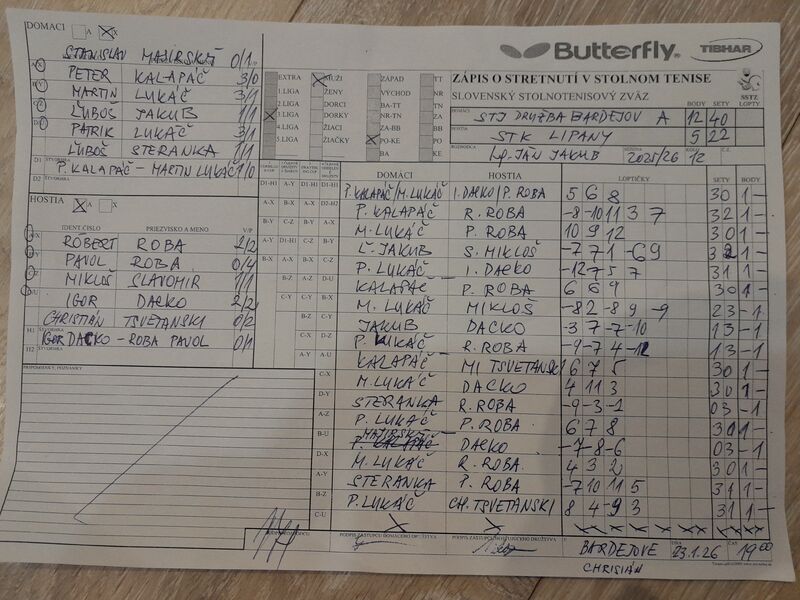 DOMÁCI A X
STANISLAV MAJIRSKÝ 0/1
PETER KALAPÁČ 3/0
MARTIN LUKÁČ 3/1
ĽUBOŠ JAKUB 1/1
PATRIK LUKÁČ 3/1
ĽUBOŠ STERANKA 1/1
D1 ŠTVORHRA P. KALAPÁČ - MARTIN LUKÁČ 1/0
D2 ŠTVORHRA
HOSTIA
IDENT. ČÍSLO PRIEZVISKO A MENO V/P
RÓBERT ROBA 2/2
PAVOL ROBA 0/4
MIKLOŠ SLAVOMIR 1/1
IGOR DACKO 2/2
CHRISTIÁN TSVETANSKI 0/2
IGOR DACKO - ROBA PAVOL 0/1
PRIPOMIENKY, POZNÁMKY
Butterfly TIBHAR
EXTRA MUŽI ZÁPAD TT
1. LIGA ŽENY VÝCHOD NR
2. LIGA DORCI BA-TT TN
3. LIGA DORKY NR-TN ZA
4. LIGA ŽIACI ZA-BB BB
5. LIGA ŽIAČKY PO-KE PO
BA KE
ZÁPIS O STRETNUTÍ V STOLNOM TENISE
SLOVENSKÝ STOLNOTENISOVÝ ZVÄZ
SSTZ
BODY SETY LOPTY
DOMÁCI STJ DRUŽBA BARDEJOV A 12 40
HOSTIA STK LIPANY 5 22
ROZHODCA JÁN JAKUB SEZÓNA 2025/26 12
DOMÁCI HOSTIA LOPTIČKY SETY BODY
P. KALAPÁČ/M. LUKÁČ I. DACKO/P. ROBA 5 6 8 3 0 1 -
P. KALAPÁČ R. ROBA -8 -10 11 3 7 3 2 1 -
M. LUKÁČ P. ROBA 10 9 12 3 0 1 -
Ľ. JAKUB S. MIKLOŠ -7 7 1 -6 9 3 2 1 -
P. LUKÁČ I. DACKO -12 7 5 7 3 1 1 -
KALAPÁČ P. ROBA 6 6 9 3 0 1 -
M. LUKÁČ MIKLOŠ -8 2 -8 9 -9 2 3 - 1
JAKUB DACKO -3 7 -7 -10 1 3 - 1
P. LUKÁČ R. ROBA -9 -7 4 -12 1 3 - 1
KALAPÁČ TSVETANSKI 6 7 5 3 0 1 -
M. LUKÁČ DACKO 4 11 3 3 0 1 -
STERANKA R. ROBA -9 -3 -2 0 3 - 1
P. LUKÁČ P. ROBA 6 7 8 3 0 1 -
MAJIRSKÝ DACKO -7 -8 -6 0 3 - 1
M. LUKÁČ R. ROBA 4 3 2 3 0 1 -
STERANKA P. ROBA -7 10 11 5 3 1 1 -
P. LUKÁČ CH. TSVETANSKI 8 4 -9 3 3 1 1 -
PODPIS ZÁSTUPCU DOMÁCEHO DRUŽSTVA PODPIS ZÁSTUPCU HOSŤUJÚCEHO DRUŽSTVA
BARDEJOVE 23.1.26 19 00
CHRISIÁN